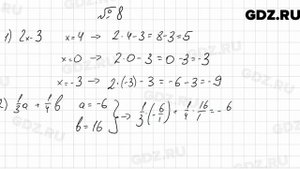 № 8
GDZ.RU
1) 2x-3 x=4 → 2·4-3=8-3=5
x=0 → 2·0-3=0-3=-3
x=-3 → 2·(-3)-3=-6-3=-9
2) 1/3 a + 1/4 b a=-6
b=16 } → 1/3 (-6/1) + 1/4 · 16/1 = -6
GDZ.RU